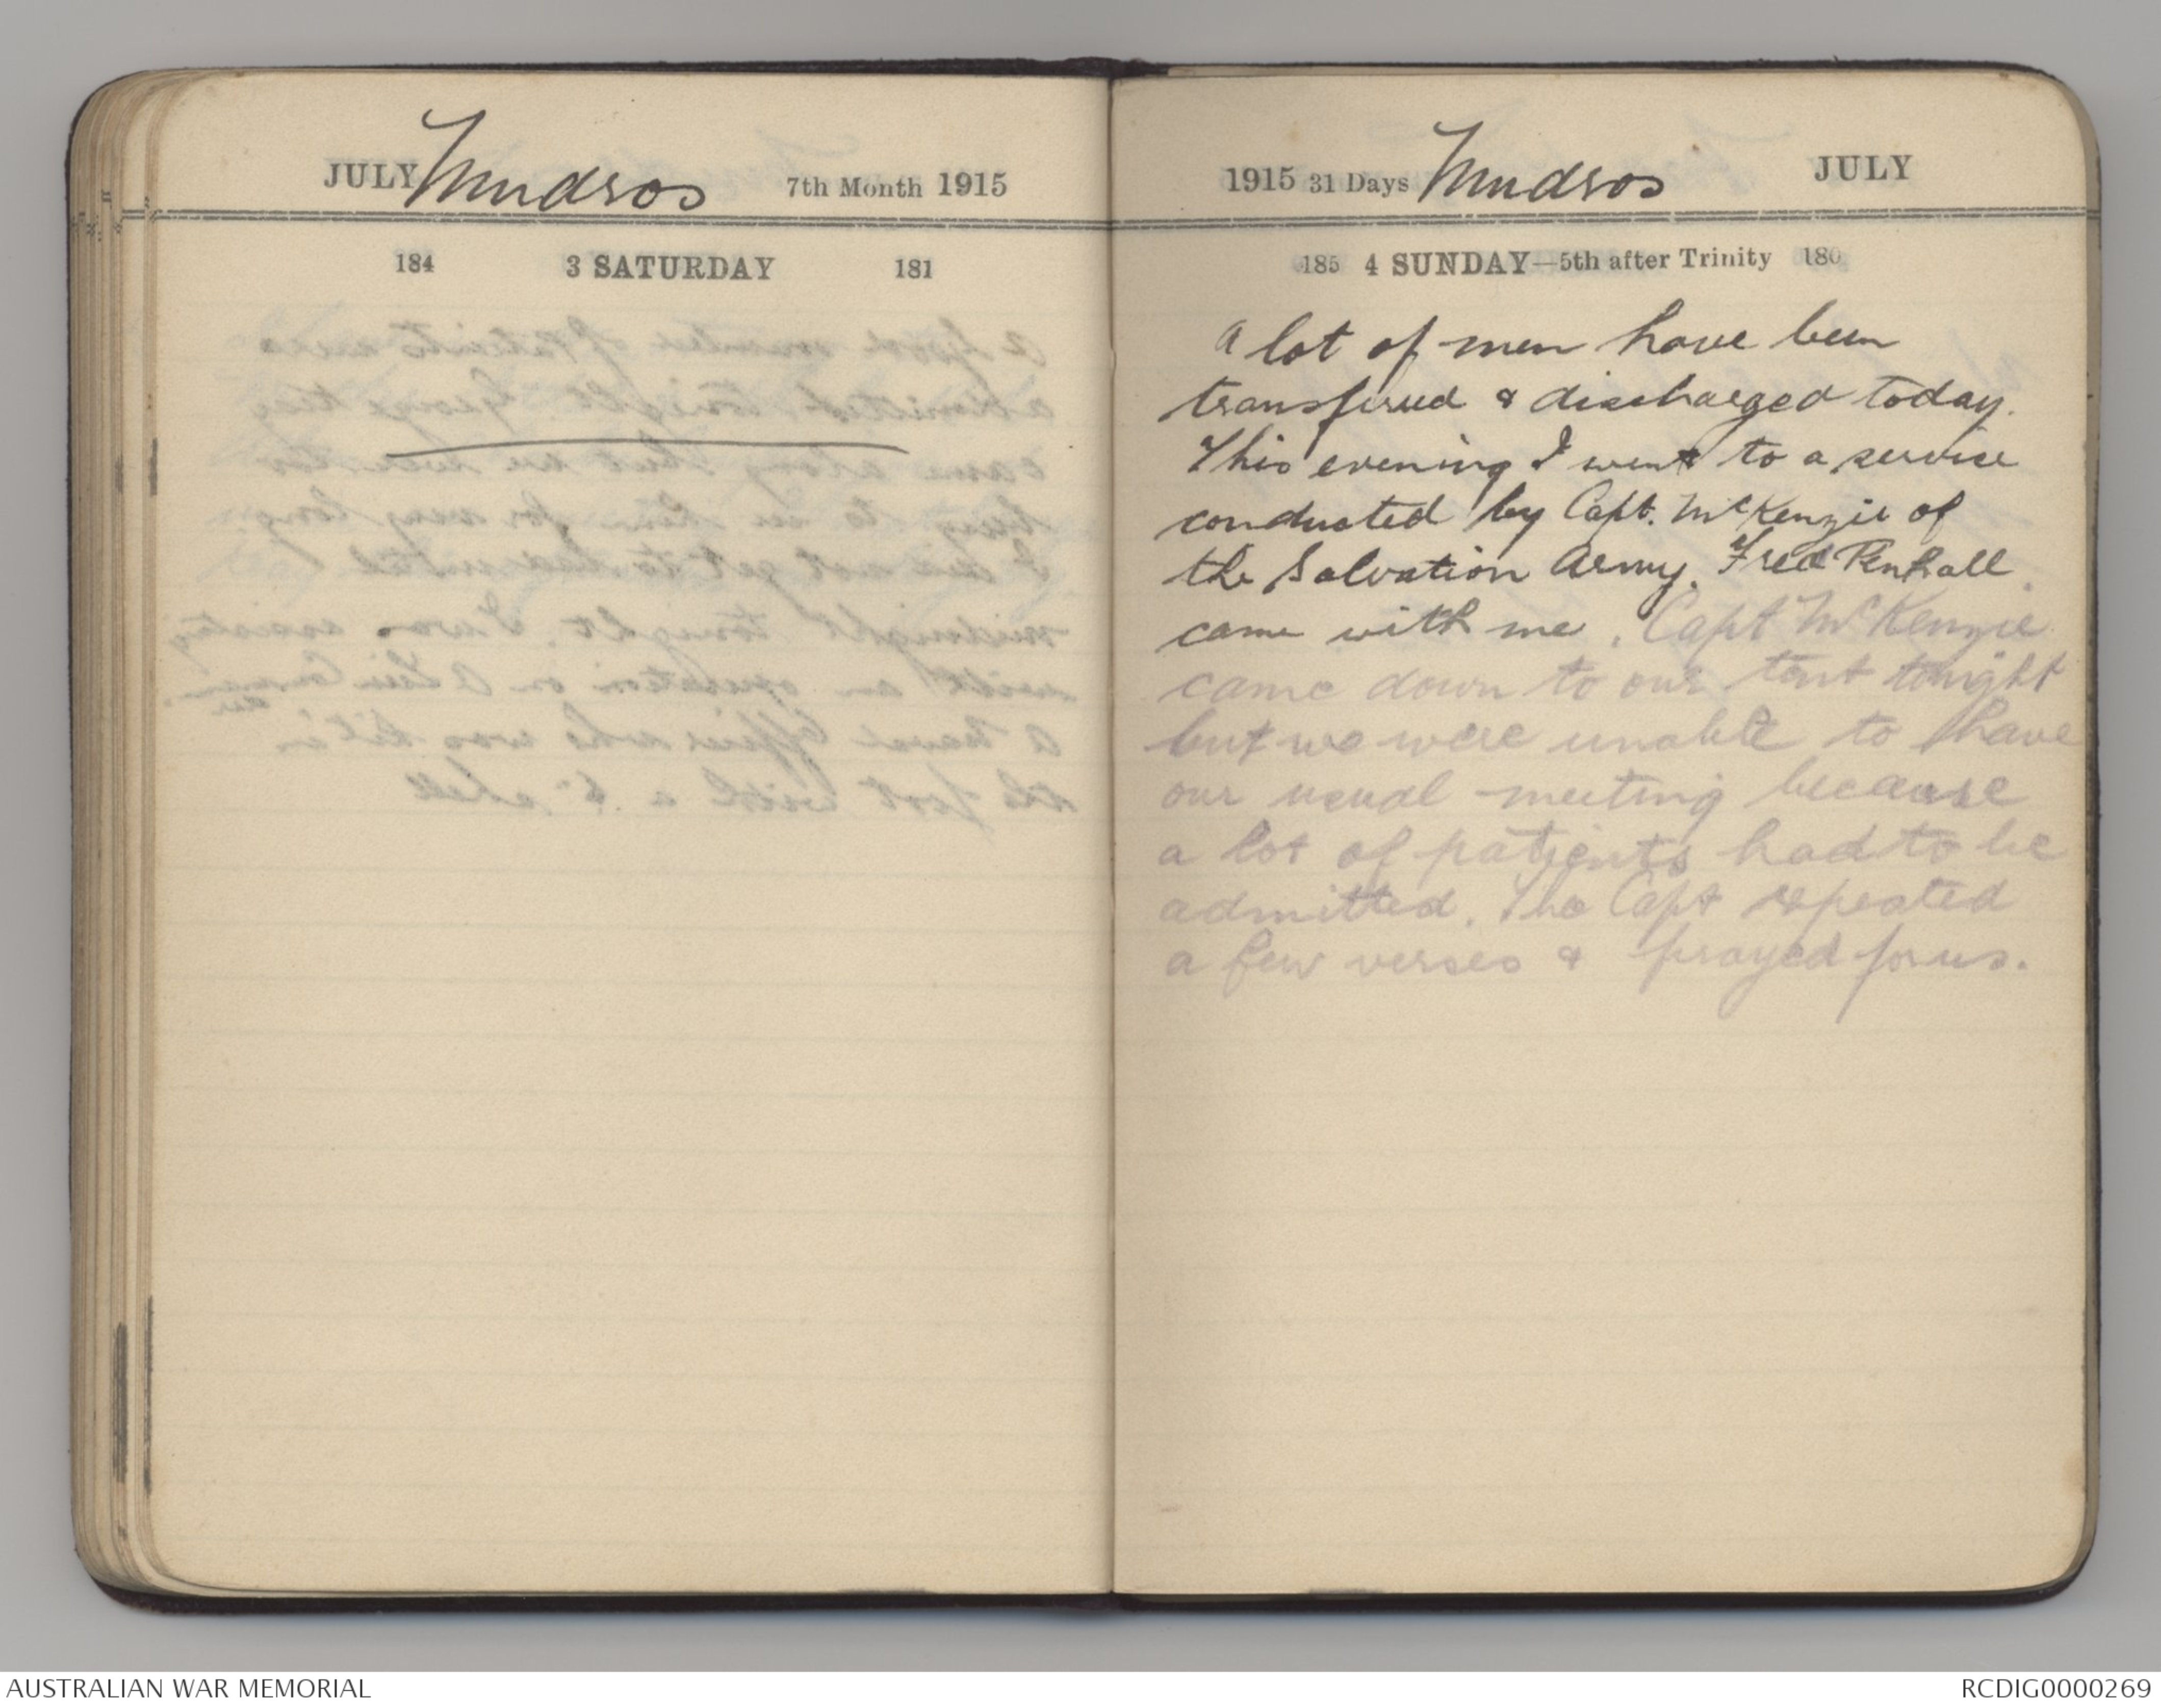 JULY Mudros 7th Month 1915
184 3 SATURDAY 181
1915 31 Days Mudros JULY
185 4 SUNDAY—5th after Trinity 180
A lot of men have been
transfered & discharged today.
This evening I went to a service
conducted by Capt. McKenzie of
the Salvation Army. Fred Penhall
came with me. Capt McKenzie
came down to our tent tonight
but we were unable to have
our usual meeting because
a lot of patients had to be
admitted. The Capt repeated
a few verses & prayed for us.
AUSTRALIAN WAR MEMORIAL
RCDIG0000269